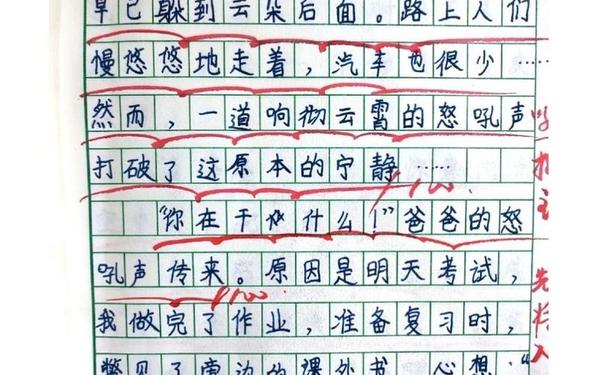 早已躲到云朵后面。路上人们
慢悠悠地走着，汽车也很少……
然而，一道响彻云霄的怒吼声
打破了这原本的宁静……
“你在干什么！”爸爸的怒
吼声传来。原因是明天考试，
我做完了作业，准备复习时，
瞥见了旁边的课外书，心想：“